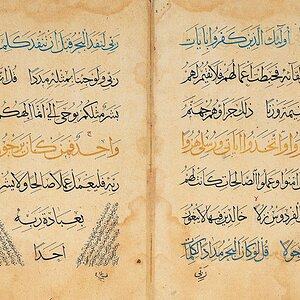 أولئك الذين كفروا بآيات
لقائه فحبطت أعمالهم فلا نقيم لهم
وزنا ذلك جزاؤهم جهنم
وا واتخذوا آياتي ورسلي هزوا
منوا وعملوا الصالحات كانت لهم
الفردوس نزلا خالدين فيها لا يبغون
حولا قل لو كان البحر مدادا لكلمات
ربي
ربي لنفد البحر قبل أن تنفد كلما
ربي ولو جئنا بمثله مددا قل
بشر مثلكم يوحى إلي أنما إلهكم
واحد فمن كان يرجو
ربه فليعمل عملا صالحا ولا يشر
بعبادة ربه
أحدا